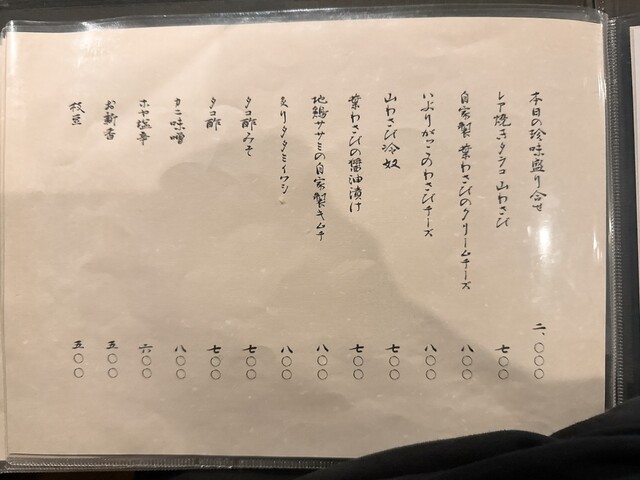 本日の珍味盛り合せ 二、〇〇〇
レア焼きタラコ 山わさび 七〇〇
自家製 葉わさびのクリームチーズ 八〇〇
いぶりがっこのわさびチーズ 八〇〇
山わさび冷奴 七〇〇
葉わさびの醤油漬け 七〇〇
地鶏ササミの自家製キムチ 八〇〇
炙りタタミイワシ 八〇〇
タコ酢みそ 七〇〇
タコ酢 七〇〇
カニ味噌 八〇〇
ホヤ塩辛 六〇〇
お新香 五〇〇
枝豆 五〇〇